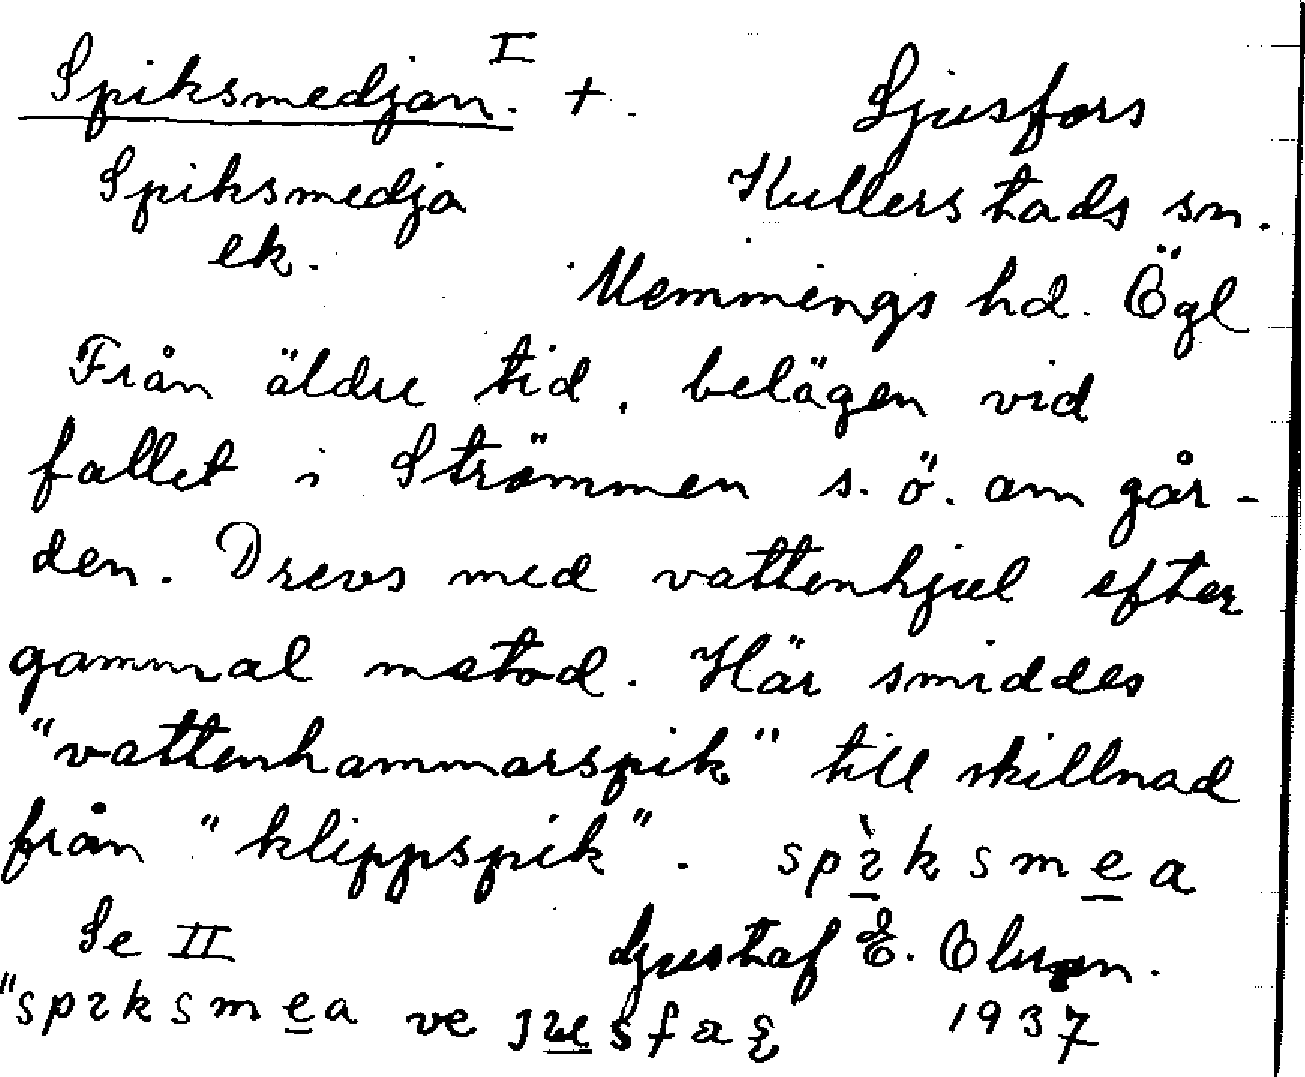 Spiksmedjan. I +.
Ljusfors
Spiksmedja
Kullerstads sn.
ek.
Memmings hd. Ögl
Från äldre tid, belägen vid
fallet i Strömmen s.ö. om går-
den. Drevs med vattenhjul efter
gammal metod. Här smiddes
"vattenhammarspik" till skillnad
från "klippspik".
Se II
Gustaf E. Olsson.
1937